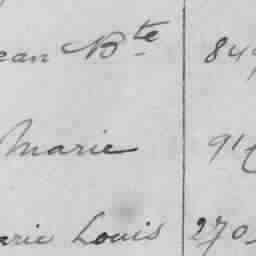 ean Bte 84
Marie 91
arie Louis 270